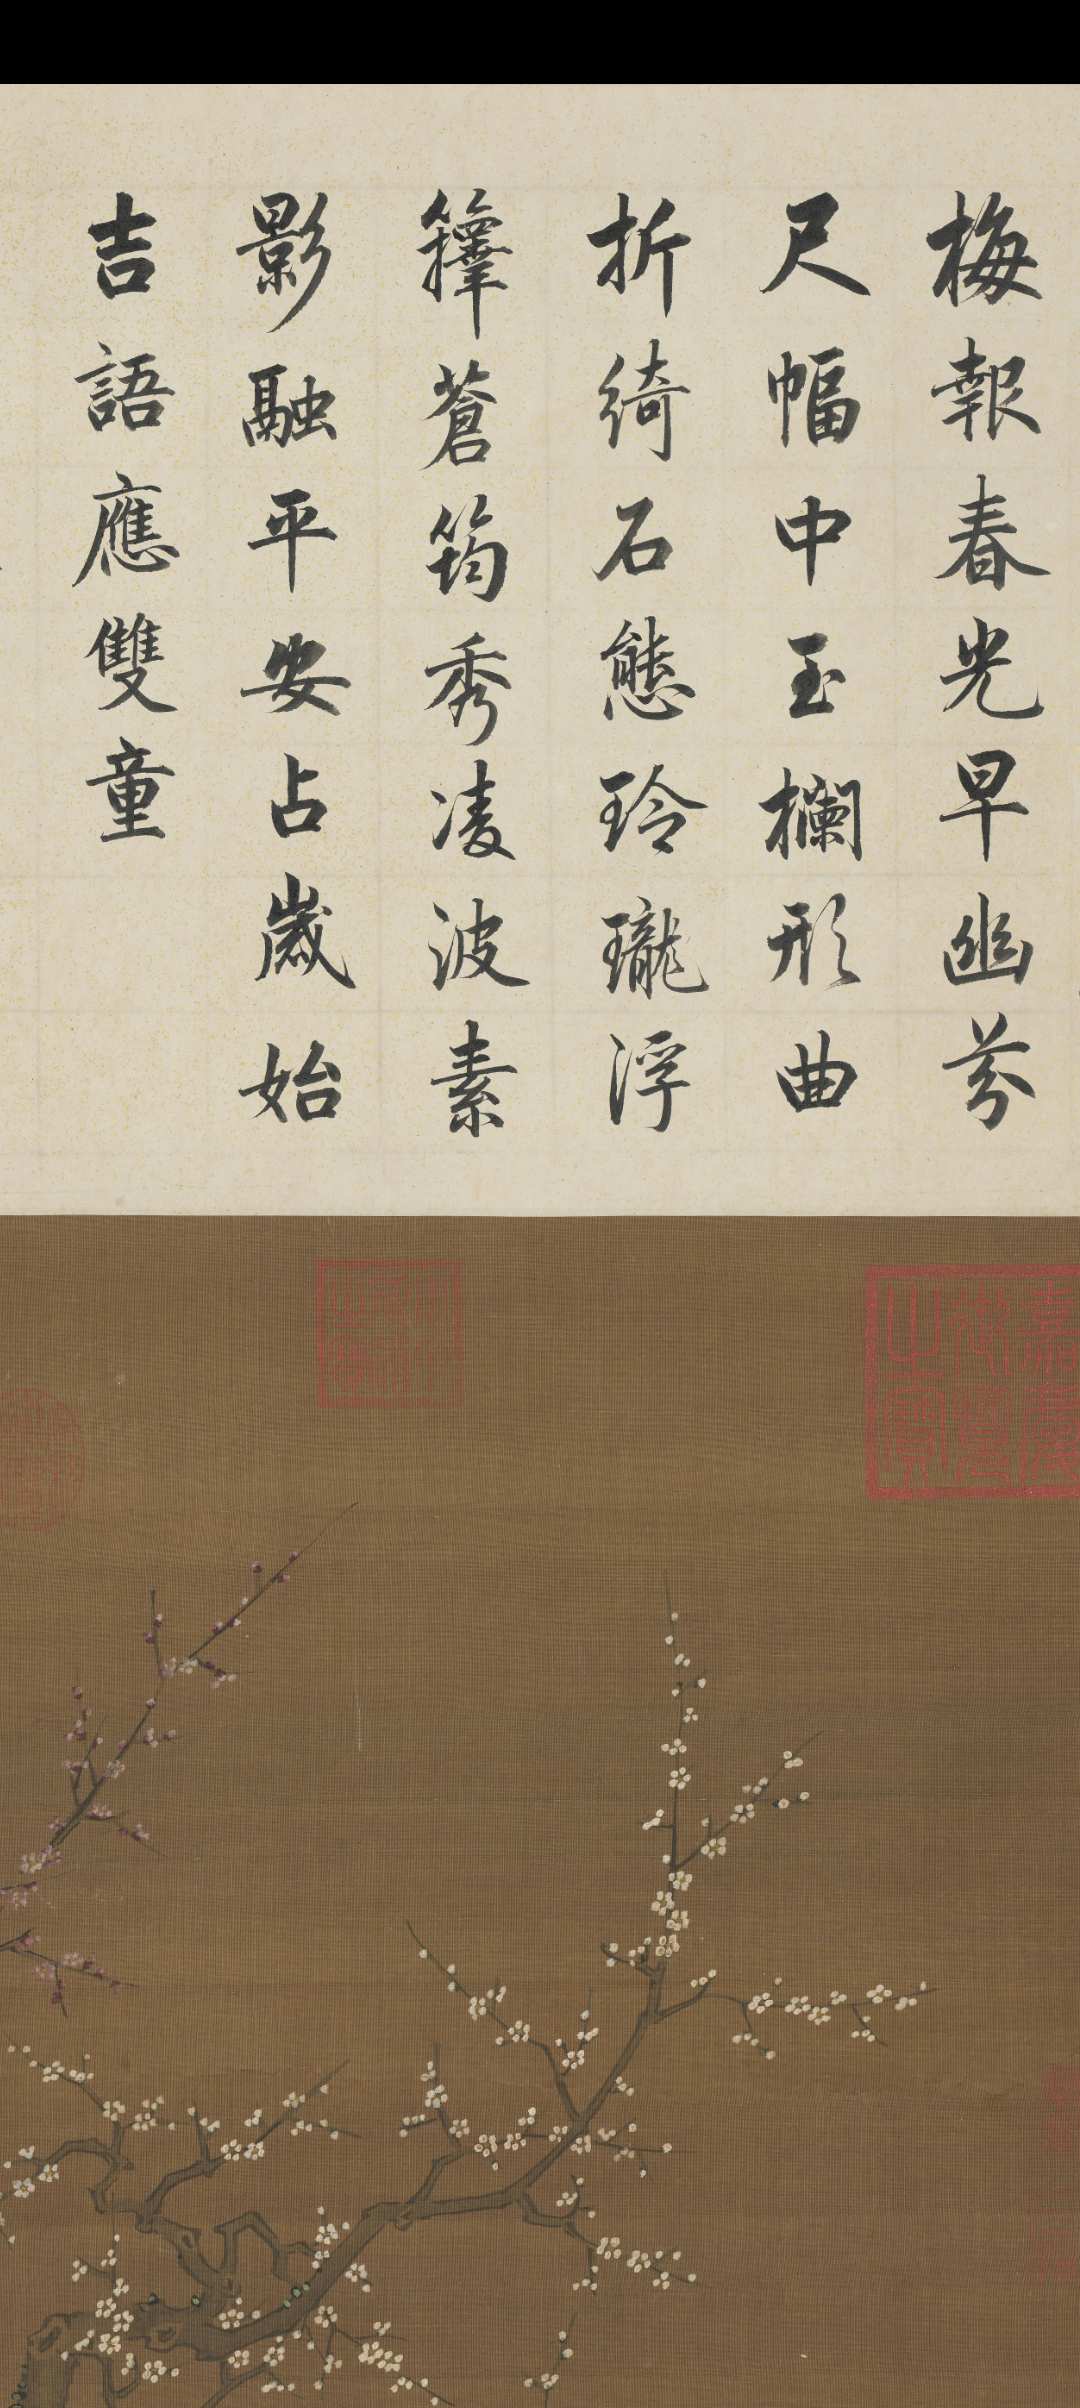 梅報春光早幽芬
尺幅中玉欄形曲
折綺石態玲瓏浮
籜蒼筠秀凌波素
影融平安占歲始
吉語應雙童
嘉慶
之寶